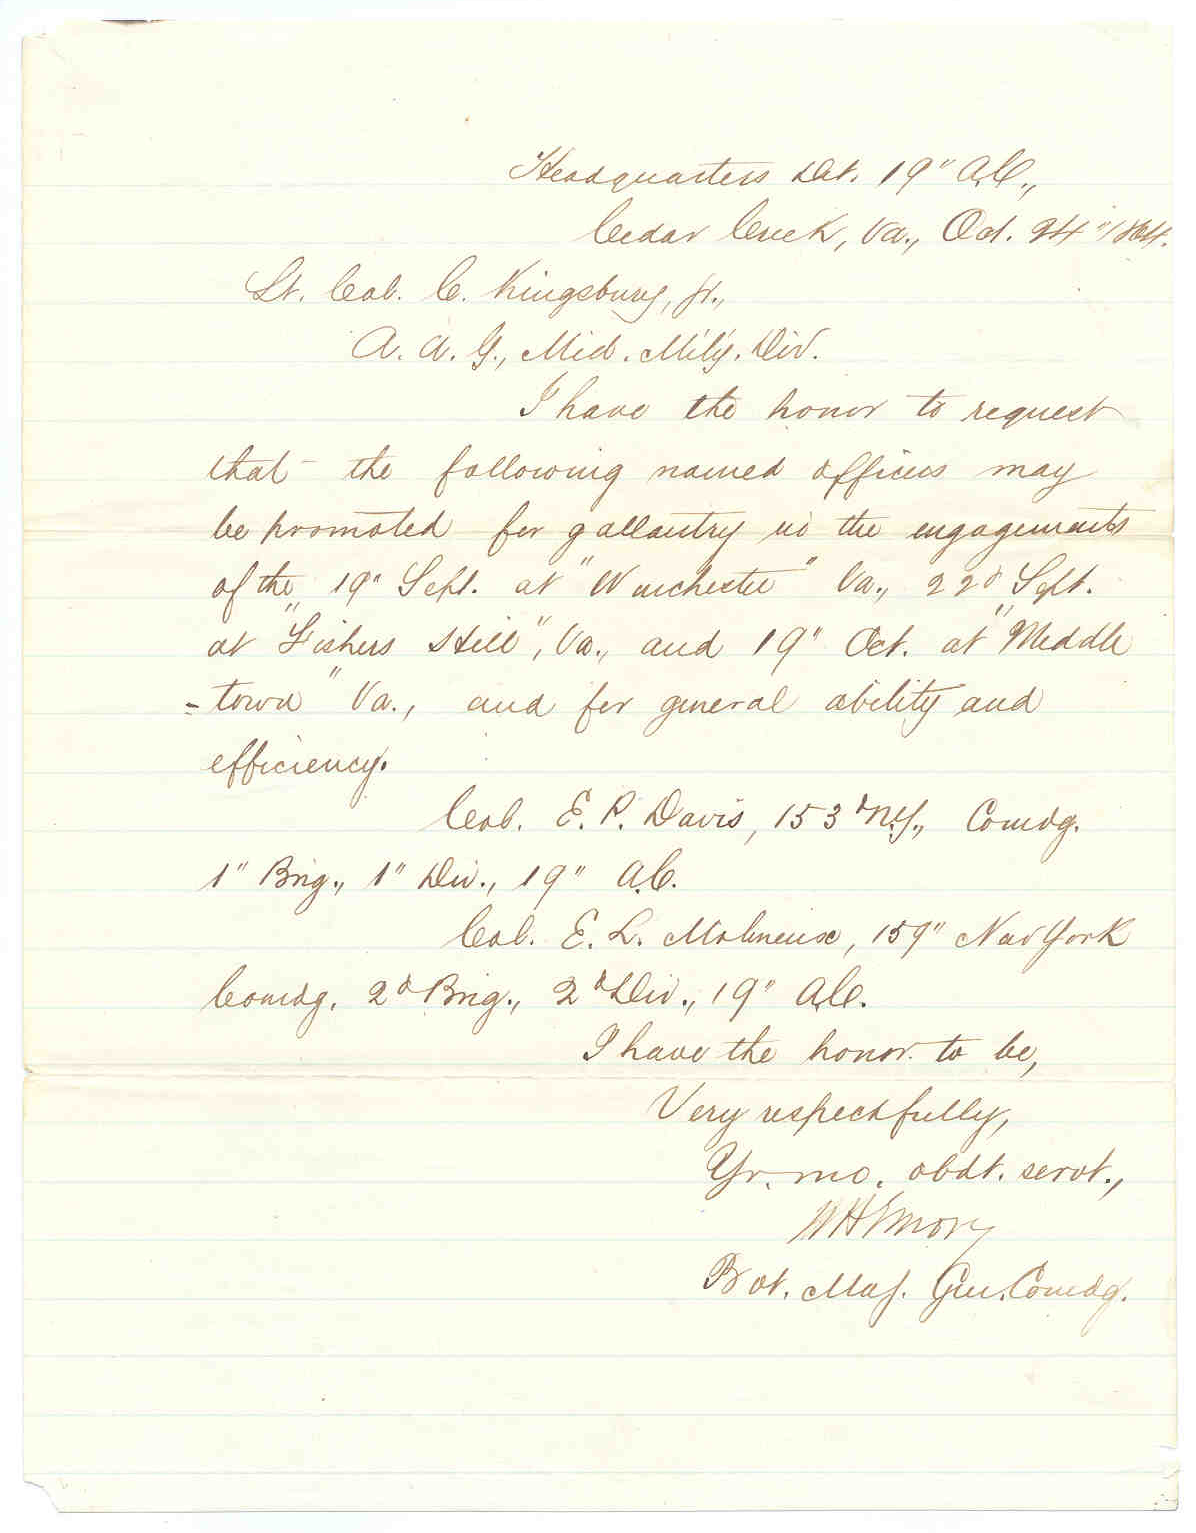 Headquarters Det. 19" A.C.,
Cedar Creek, Va., Oct. 24" 1864.
Lt. Col. C. Kingsbury, jr.,
A. A. G., Mid. Mil'y. Div.
I have the honor to request
that the following named officers may
be promoted for gallantry in the engagements
of the 19" Sept. at "Winchester" Va., 22d Sept.
at "Fishers Hill", Va., and 19" Oct. at "Middle
-town" Va., and for general ability and
efficiency.
Col. E. P. Davis, 153d N.Y., Comdg.
1" Brig., 1" Div., 19" A.C.
Col. E. L. Molineux, 159" New York
Comdg. 2d Brig., 2d Div., 19" A.C.
I have the honor to be,
Very respectfully,
Yr. mo. obdt. servt.,
W H Emory
Bvt. Maj. Gen. Comdg.